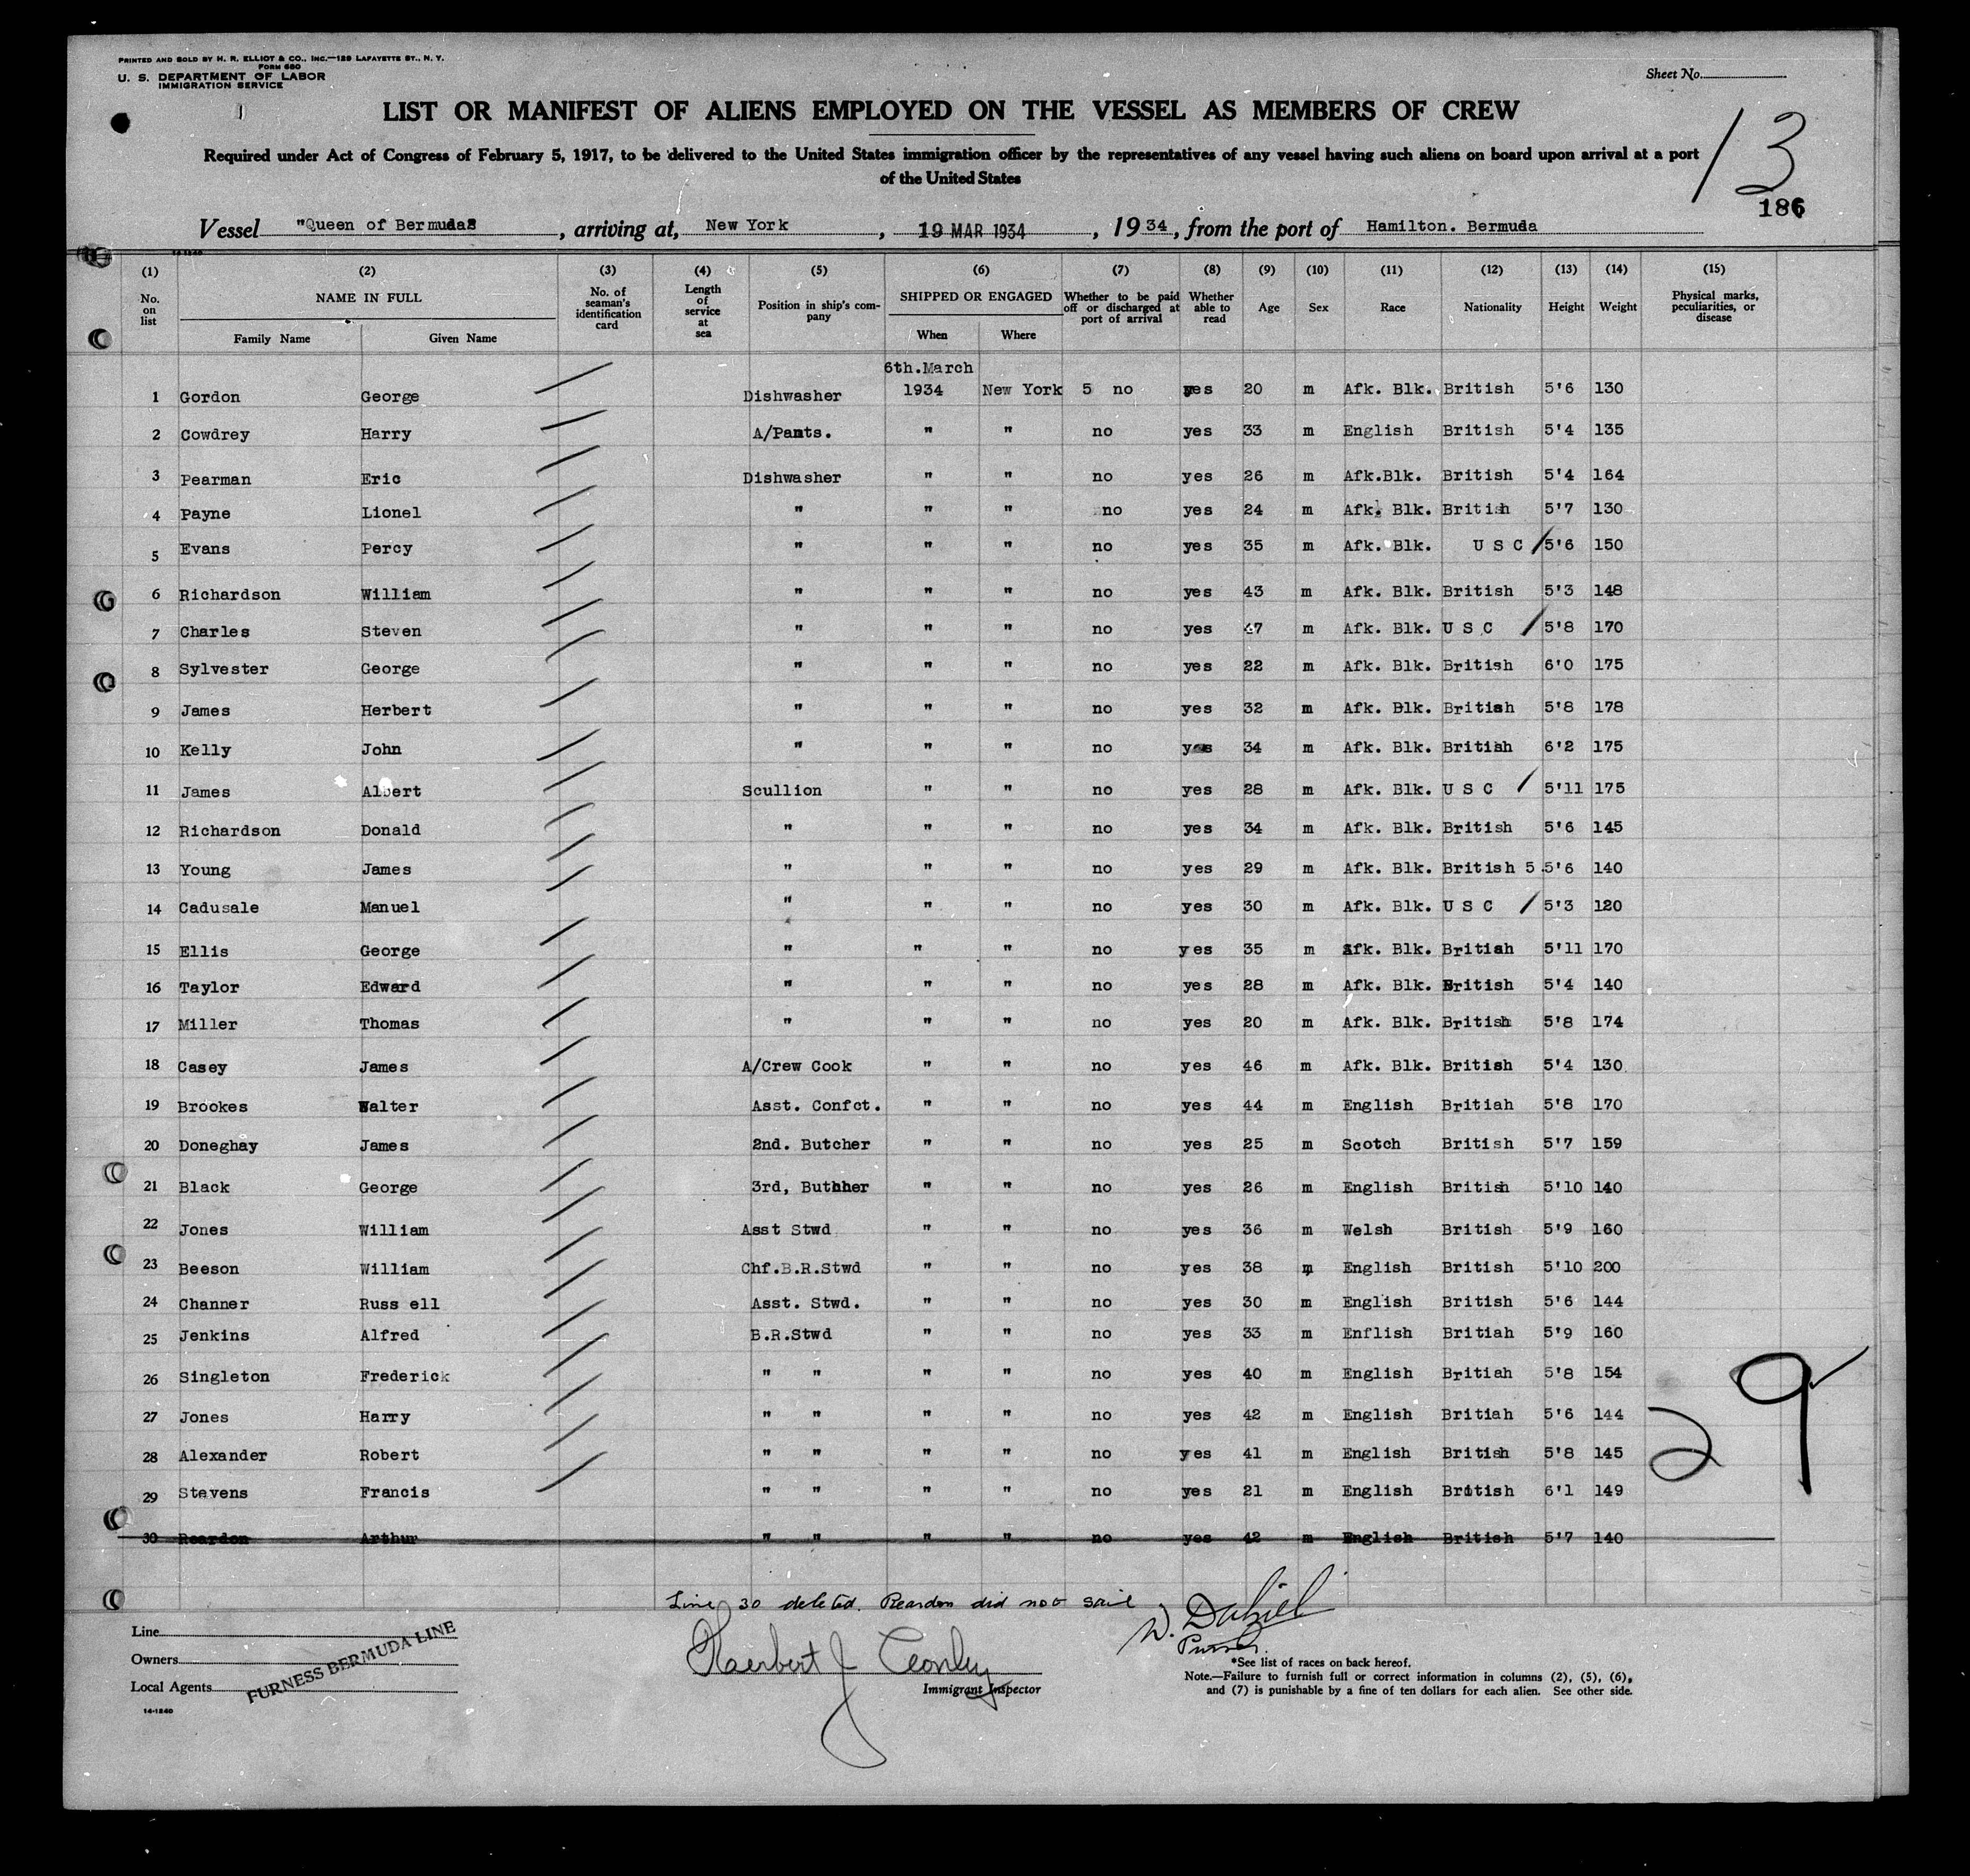 PRINTED AND SOLD BY H. R. ELLIOT & CO., INC.—129 LAFAYETTE ST., N. Y.
FORM 680
U. S. DEPARTMENT OF LABOR
IMMIGRATION SERVICE
Sheet No.
LIST OR MANIFEST OF ALIENS EMPLOYED ON THE VESSEL AS MEMBERS OF CREW
13
Required under Act of Congress of February 5, 1917, to be delivered to the United States immigration officer by the representatives of any vessel having such aliens on board upon arrival at a port
of the United States
186
Vessel "Queen of Bermuda", arriving at, New York, 19 MAR 1934, 1934, from the port of Hamilton. Bermuda
14-1240
(1) (2) (3) (4) (5) (6) (7) (8) (9) (10) (11) (12) (13) (14) (15)
No. on list NAME IN FULL Family Name Given Name No. of seaman's identification card Length of service at sea Position in ship's company SHIPPED OR ENGAGED When Where Whether to be paid off or discharged at port of arrival Whether able to read Age Sex Race Nationality Height Weight Physical marks, peculiarities, or disease
6th.March
1 Gordon George Dishwasher 1934 New York 5 no yes 20 m Afk. Blk. British 5'6 130
2 Cowdrey Harry A/Pants. " " no yes 33 m English British 5'4 135
3 Pearman Eric Dishwasher " " no yes 26 m Afk.Blk. British 5'4 164
4 Payne Lionel " " " no yes 24 m Afk. Blk. British 5'7 130
5 Evans Percy " " " no yes 35 m Afk. Blk. U S C 5'6 150
6 Richardson William " " " no yes 43 m Afk. Blk. British 5'3 148
7 Charles Steven " " " no yes 47 m Afk. Blk. U S C 5'8 170
8 Sylvester George " " " no yes 22 m Afk. Blk. British 6'0 175
9 James Herbert " " " no yes 32 m Afk. Blk. British 5'8 178
10 Kelly John " " " no yes 34 m Afk. Blk. British 6'2 175
11 James Albert Scullion " " no yes 28 m Afk. Blk. U S C 5'11 175
12 Richardson Donald " " " no yes 34 m Afk. Blk. British 5'6 145
13 Young James " " " no yes 29 m Afk. Blk. British 5 5'6 140
14 Cadusale Manuel " " " no yes 30 m Afk. Blk. U S C 5'3 120
15 Ellis George " " " no yes 35 m Afk. Blk. British 5'11 170
16 Taylor Edward " " " no yes 28 m Afk. Blk. British 5'4 140
17 Miller Thomas " " " no yes 20 m Afk. Blk. British 5'8 174
18 Casey James A/Crew Cook " " no yes 46 m Afk. Blk. British 5'4 130
19 Brookes Walter Asst. Confct. " " no yes 44 m English Britiah 5'8 170
20 Doneghay James 2nd. Butcher " " no yes 25 m Scotch British 5'7 159
21 Black George 3rd, Buthher " " no yes 26 m English British 5'10 140
22 Jones William Asst Stwd " " no yes 36 m Welsh British 5'9 160
23 Beeson William Chf.B.R.Stwd " " no yes 38 m English British 5'10 200
24 Channer Russ ell Asst. Stwd. " " no yes 30 m English British 5'6 144
25 Jenkins Alfred B.R.Stwd " " no yes 33 m Enflish Britiah 5'9 160
26 Singleton Frederick " " " " no yes 40 m English Britiah 5'8 154
27 Jones Harry " " " " no yes 42 m English Britiah 5'6 144
28 Alexander Robert " " " " no yes 41 m English British 5'8 145
29 Stevens Francis " " " " no yes 21 m English British 6'1 149
29
30 Reardon Arthur " " " " no yes 42 m English British 5'7 140
Line 30 deleted. Reardon did not sail
W. Dalziel
Purser.
Line
Owners
Local Agents
FURNESS BERMUDA LINE
14-1240
Immigrant Inspector
*See list of races on back hereof.
Note.—Failure to furnish full or correct information in columns (2), (5), (6),
and (7) is punishable by a fine of ten dollars for each alien. See other side.